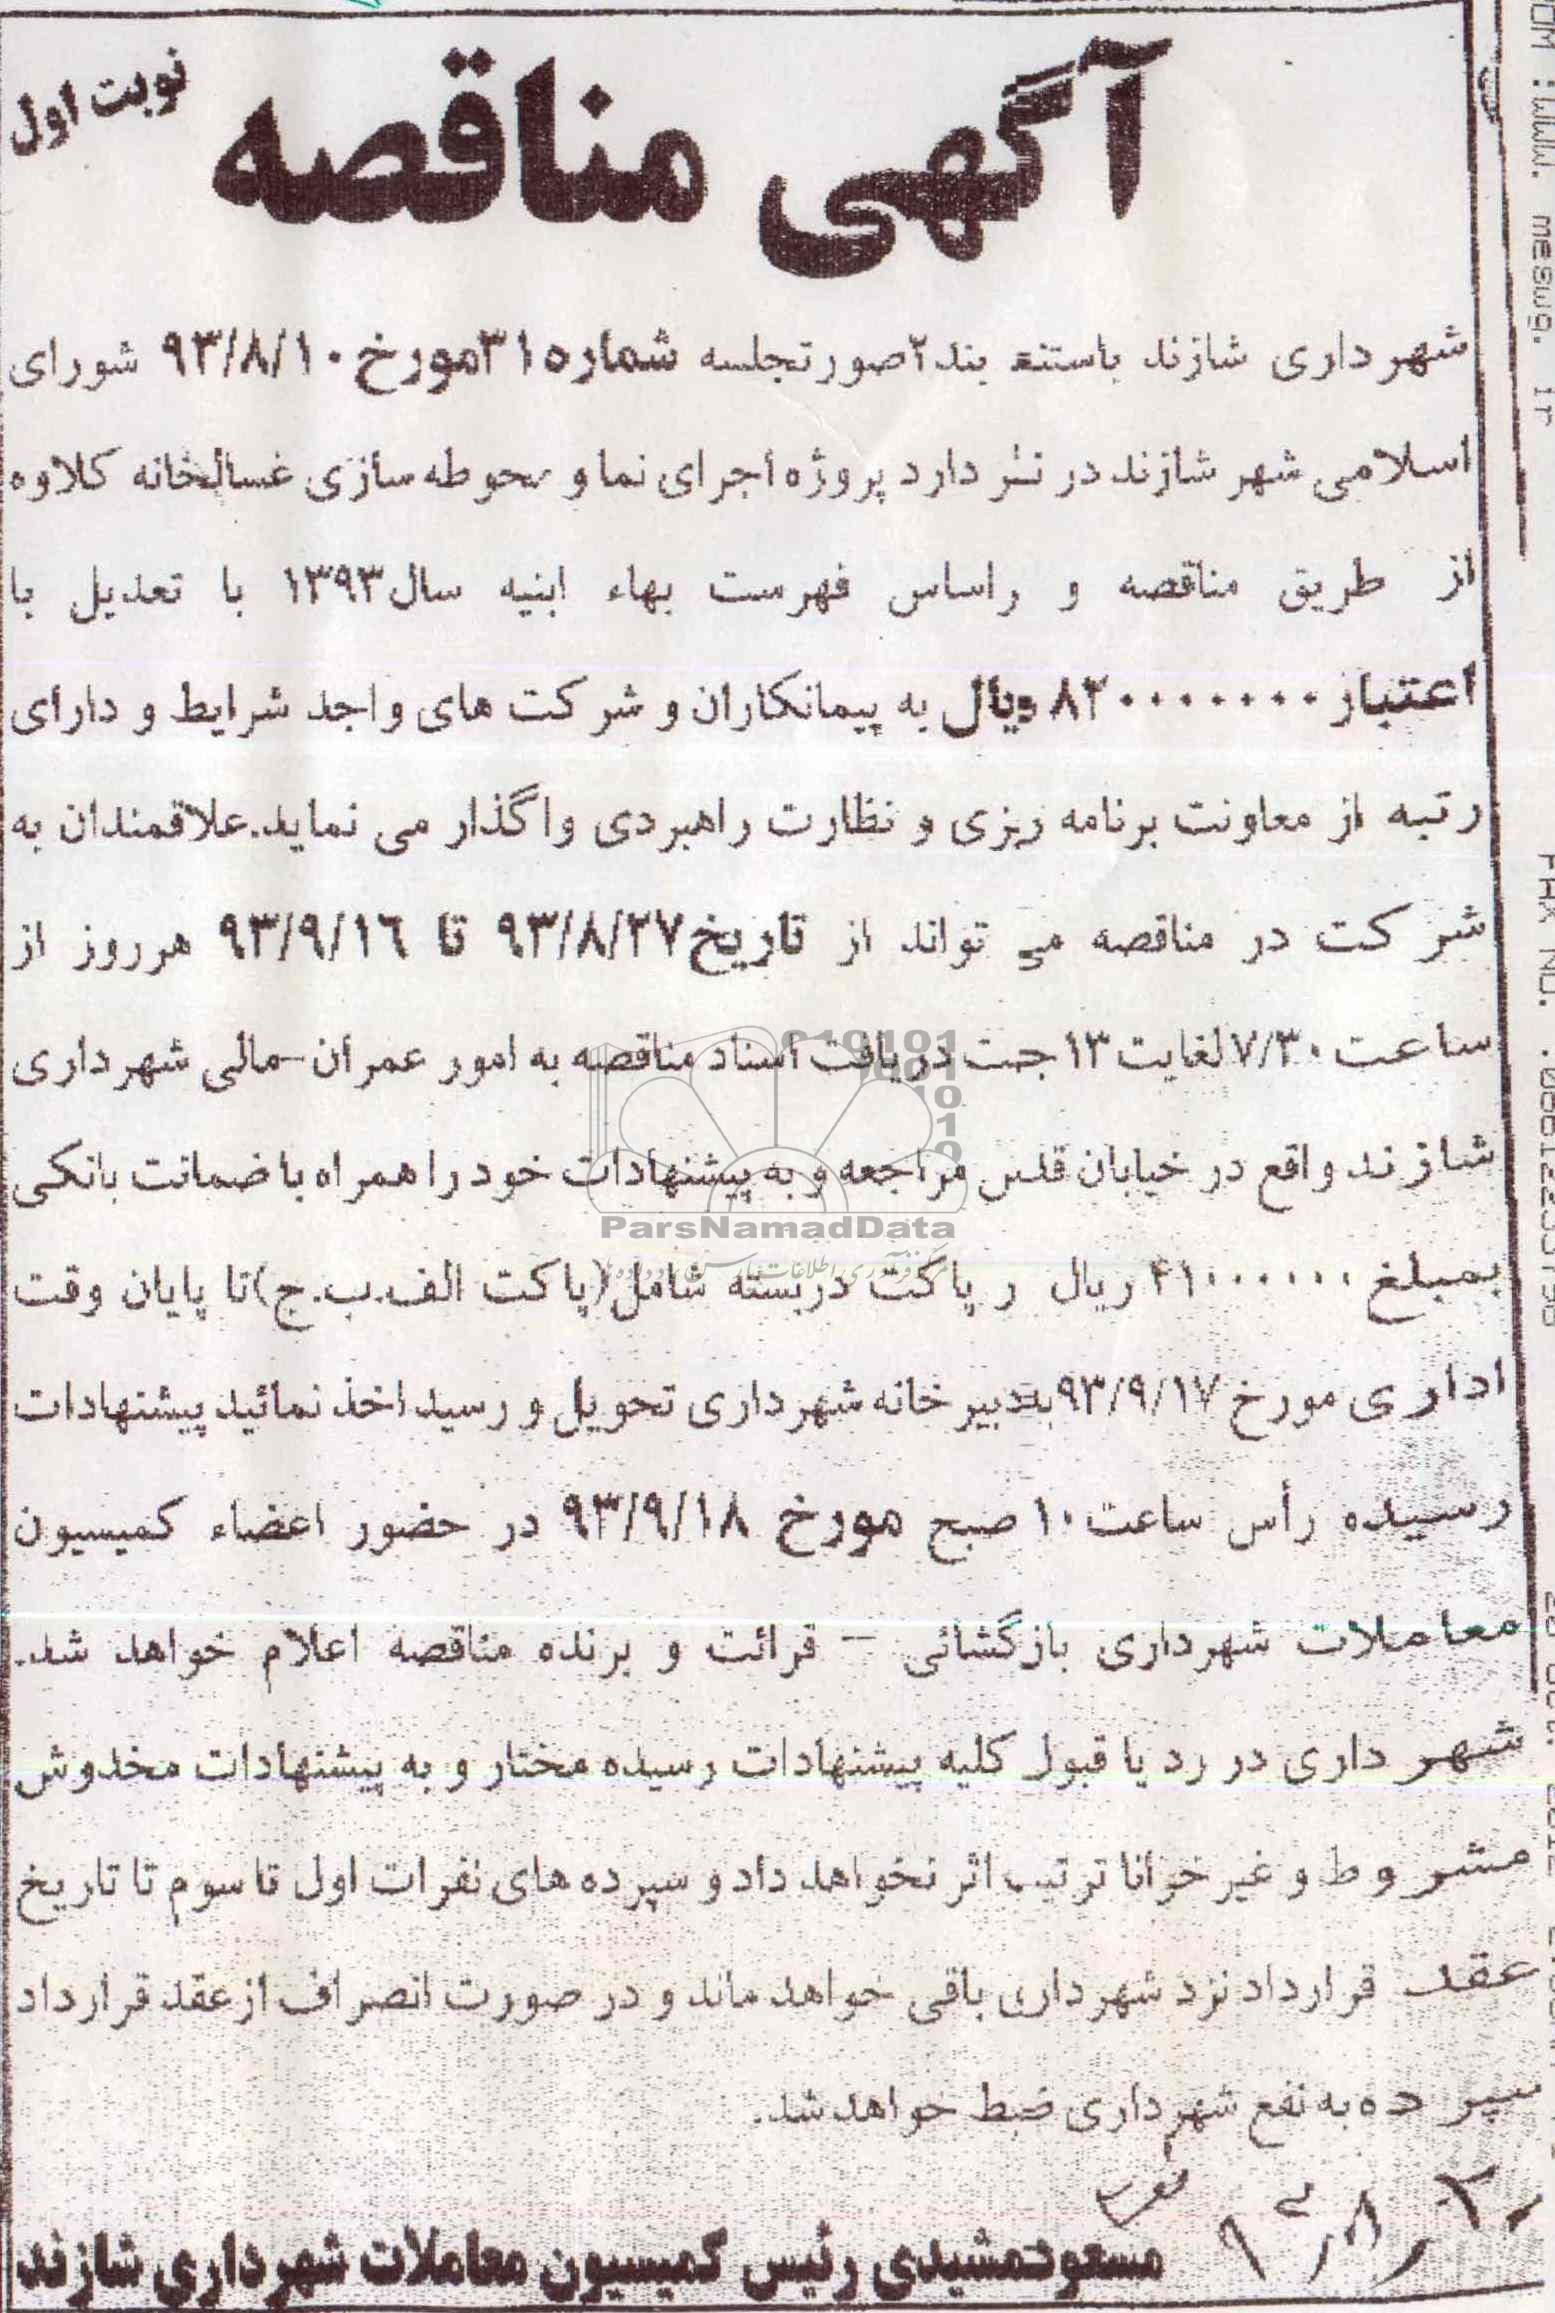 آگهی مناقصه
نوبت اول
شهرداری شازند باستند بند۲صورتجلسه شماره۳۱مورخ۹۳/۸/۱۰ شورای
اسلامی شهر شازند در نظر دارد پروژه اجرای نما و محوطه سازی غسالخانه کلاوه
از طریق مناقصه و راساس فهرست بهاء ابنیه سال۱۳۹۳ با تعدیل با
اعتبار ۸۲۰۰۰۰۰۰۰ ریال به پیمانکاران و شرکت های واجد شرایط و دارای
رتبه از معاونت برنامه ریزی و نظارت راهبردی واگذار می نماید.علاقمندان به
شرکت در مناقصه می تواند از تاریخ۹۳/۸/۲۷ تا ۹۳/۹/۱۶ هرروز از
ساعت ۷/۳۰لغایت ۱۳جهت دریافت اسناد مناقصه به امور عمران-مالی شهرداری
شازند واقع در خیابان قدس مراجعه و به پیشنهادات خود را همراه با ضمانت بانکی
بمبلغ ۴۱۰۰۰۰۰۰ ریال ر پاکت دربسته شامل(پاکت الف.ب.ج)تا پایان وقت
اداری مورخ ۹۳/۹/۱۷به دبیرخانه شهرداری تحویل و رسید اخذ نمائید پیشنهادات
رسیده رأس ساعت ۱۰صبح مورخ ۹۳/۹/۱۸ در حضور اعضاء کمیسیون
معاملات شهرداری بازگشائی - قرائت و برنده مناقصه اعلام خواهد شد.
شهرداری در رد یا قبول کلیه پیشنهادات رسیده مختار و به پیشنهادات مخدوش
مشروط و غیر خوانا ترتیب اثر نخواهد داد و سپرده های نفرات اول تا سوم تا تاریخ
عقد قرارداد نزد شهرداری باقی خواهد ماند و در صورت انصراف از عقد قرارداد
سپرده به نفع شهرداری ضبط خواهد شد.
مسعودجمشیدی رئیس کمیسیون معاملات شهرداری شازند
ParsNamadData